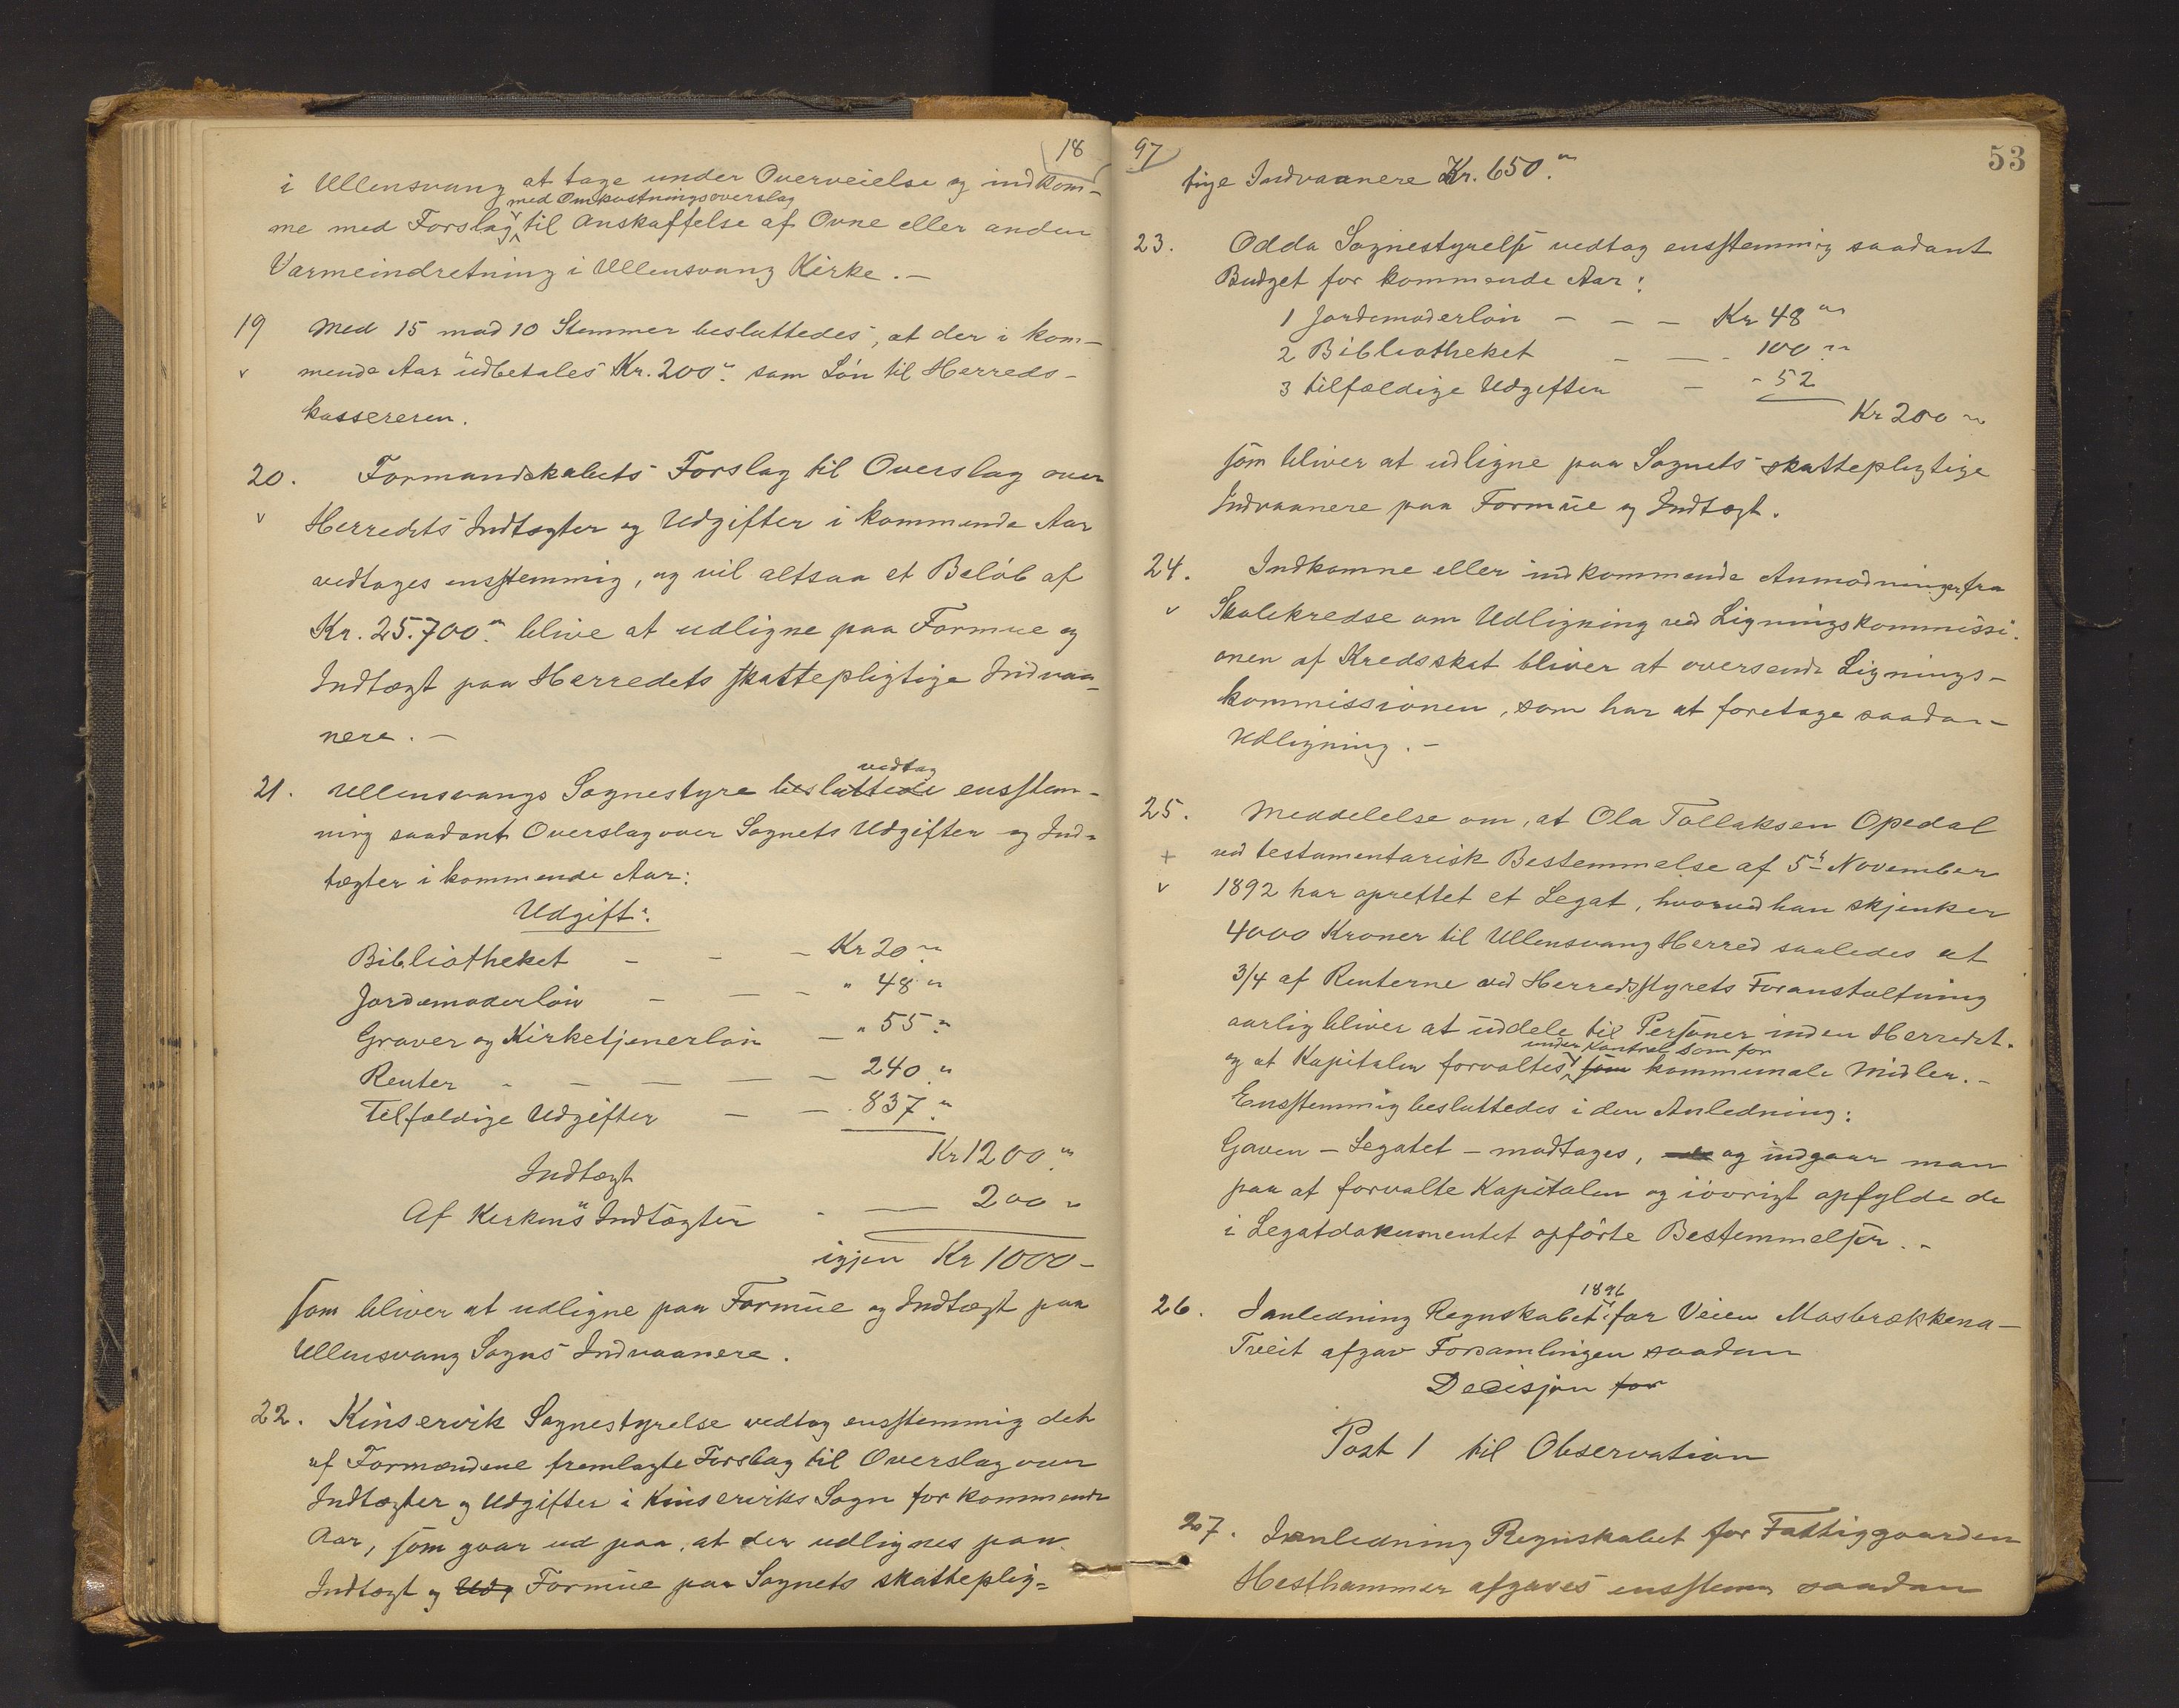 18
i Ullensvang at tage under Overveielse og indkom-
med Omkostningsoverslag
me med Forslag til Anskaffelse af Ovne eller anden
Varmeindretning i Ullensvang Kirke. -
19 Med 15 mod 10 Stemmer besluttedes, at der i kom-
v mende Aar udbetales Kr. 200" som Løn til Herreds-
kassereren.
20. Formandskabets Forslag til Overslag over
v Herredets Indtægter og Udgifter i kommende Aar
vedtages ensstemmig, og vil altsaa et Beløb af
Kr. 25.700" blive at udligne paa Formue og
Indtægt paa Herredets skattepligtige Indvaa-
nere. -
vedtog
21. Ullensvangs Sognestyre besluttede ensstem-
mig saadant Overslag over Sognets Udgifter og Ind-
tægter i kommende Aar:
Udgift:
Bibliotheket - - - Kr 20 "
Jordemoderløn - - - " 48 "
Graver og Kirketjenerløn - " 55 "
Renter - - - - - 240 "
Tilfældige Udgifter - - 837 "
Kr 1200 "
Indtægt
Af Kirkens Indtægter - - 200 "
igjen Kr 1000 -
som bliver at udligne paa Formue og Indtægt paa
Ullensvang Sogns Indvaanere.
22. Kinservik Sognestyrelse vedtog ensstemmig det
af Formændene fremlagte Forslag til Overslag over
Indtægter og Udgifter i Kinserviks Sogn for kommende
Aar, som gaar ud paa, at der udlignes paa
Indtægt og Udg Formue paa Sognets skatteplig-
97
53
tige Indvaanere Kr. 650."
23. Odda Sognestyrelse vedtog ensstemmig saadant
Budget for kommende Aar:
1 Jordemoderløn - - - Kr 48 "
2 Bibliotheket - - - 100 "
3 tilfældige Udgifter - - 52
Kr 200 "
som bliver at udligne paa Sognets skattepligtige
Indvaanere paa Formue og Indtægt.
24. Indkomne eller indkommende Anmodninger fra
v Skolekredse om Udligning ved Ligningskommissi-
onen af Kredsskat bliver at oversende Lignings-
kommissionen, som har at foretage saadan
Udligning. -
25. Meddelelse om, at Ola Tollaksen Opedal
+ ved testamentarisk Bestemmelse af 5te November
v 1892 har oprettet et Legat, hvorved han skjenker
4000 Kroner til Ullensvang Herred saaledes at
3/4 af Renterne ved Herredsstyrets Foranstaltning
aarlig bliver at uddele til Personer inden Herredet.
under Kontrol som for
og at Kapitalen forvaltes som kommunale Midler. -
Ensstemmig besluttedes i den Anledning:
Gaven - Legatet - modtages, og indgaar man
paa at forvalte Kapitalen og iøvrigt opfylde de
i Legatdokumentet opførte Bestemmelser. -
1896
26. I anledning Regnskabet for Veien Mosbrækkena-
Treit afgav Forsamlingen saadan
Decisjon for
Post 1 til Observation
27. I anledning Regnskabet for Fattiggaarden
Hesthammer afgaves ensstemm saadan